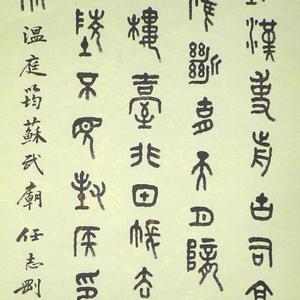 漢使前古祠高
雁斷胡天月隴
樓臺非甲帳去
陵不見封侯印
川 温庭筠蘇武廟 任志剛